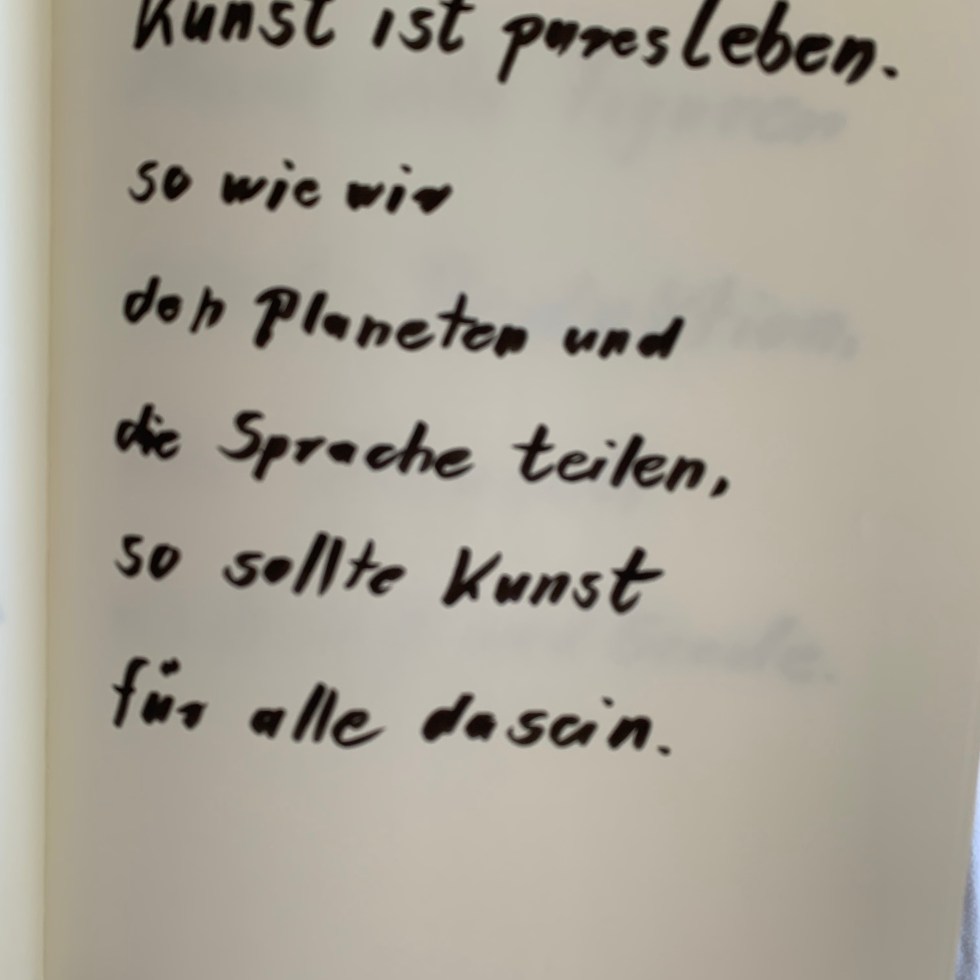 Kunst ist pures Leben.
so wie wir
den Planeten und
die Sprache teilen,
so sollte Kunst
für alle dasein.